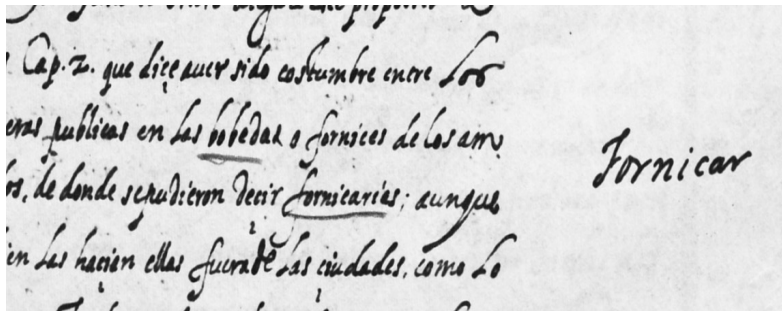 Cap. 2. que diçe aver sido costumbre entre los
publicas en las bobedas o fornices de los am
Fornicar
de donde se pudieron decir fornicarias; aunque
las hacien ellas fuera de las ciudades, como lo